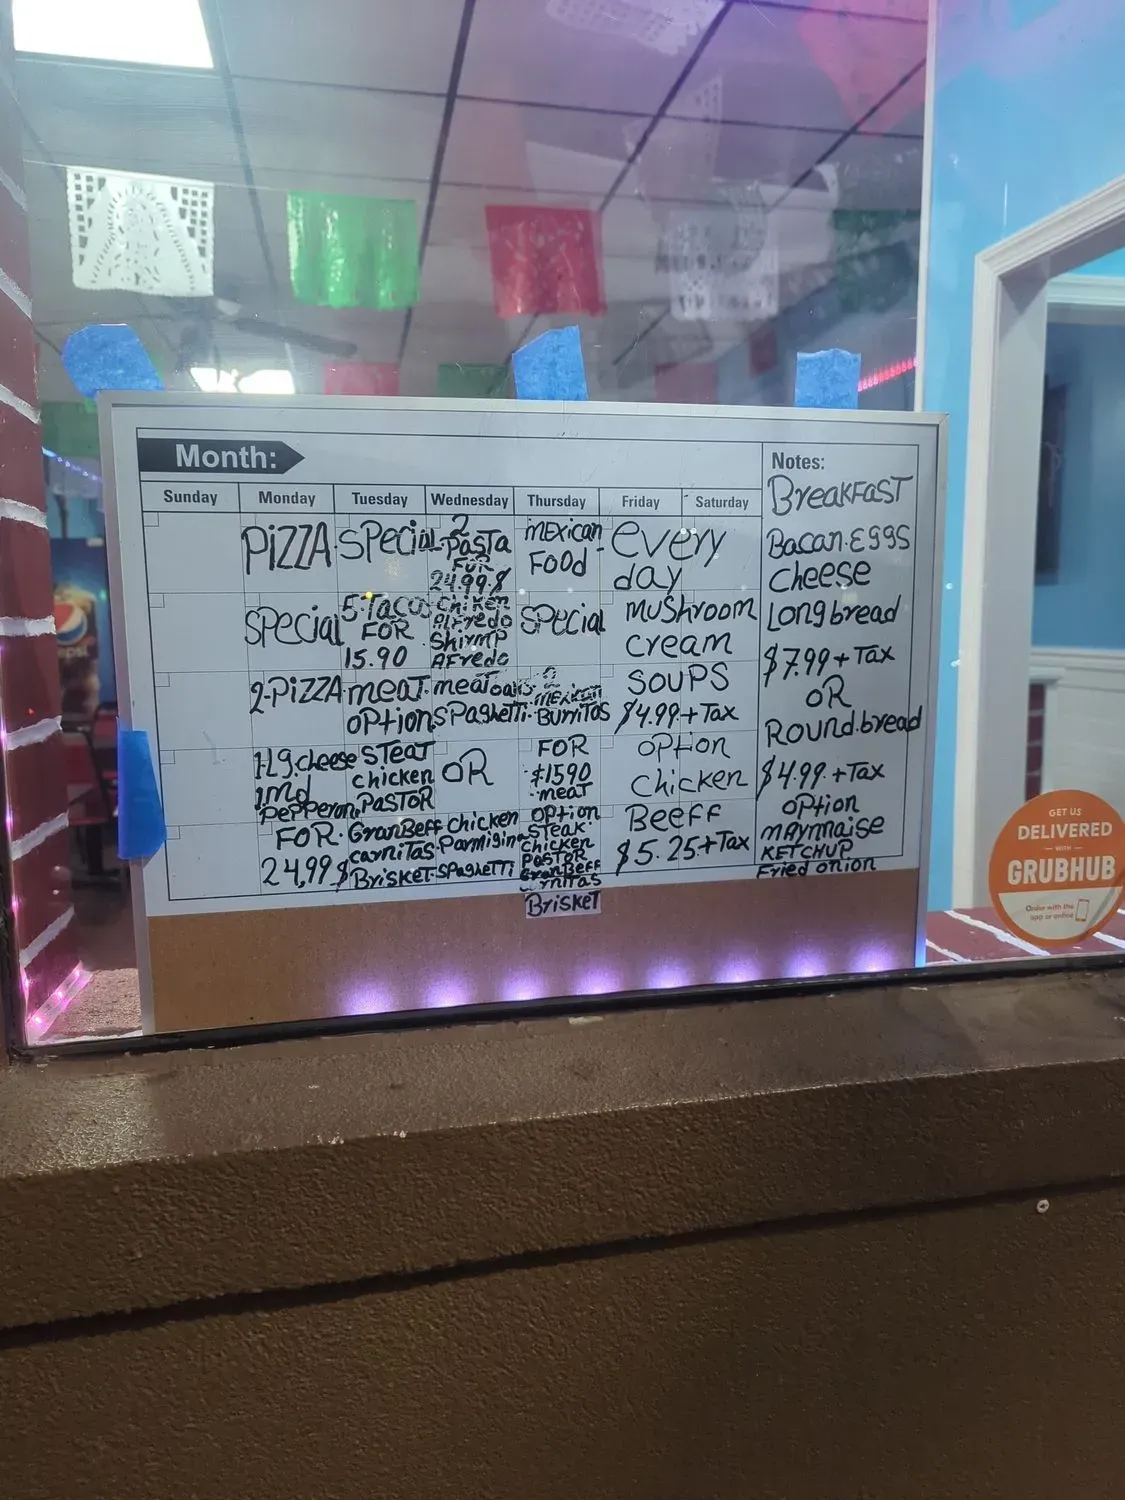 Month:
Sunday
Monday
PiZZA
SPecial
2-PiZZA
1Lg.cheese
1Md
Pepperoni
FOR
24,99$
Tuesday
SPecial
5.Tacos
FOR
15.90
meaT
oPtion
STeaT
chicken
PasToR
GranBeff
carniTas
BriskeT
Wednesday
2
PasTa
FOR
24.99.$
Chiken
AlFredo
ShirmP
AFredo
meaToalls
SPagheTTi
OR
chicken
Parmigina
SPagheTTi
Thursday
mExican
FOOd
SPecial
2
mExican
BurriTos
FOR
$1590
meaT
oPTion
STeak
chicken
PasToR
GranBeff
rniTas
BriskeT
Friday
Saturday
every
day
muShroom
cream
SOUPS
$4.99+Tax
oPtion
chicken
BeeFF
$5.25+Tax
Notes:
BreakFasT
Bacan.Eggs
cheese
Longbread
$7.99+Tax
OR
Round.bread
$4.99.+Tax
oPtion
maynnaise
KETCHUP
Fried onion
GET US
DELIVERED
WITH
GRUBHUB
Order with the
app or online